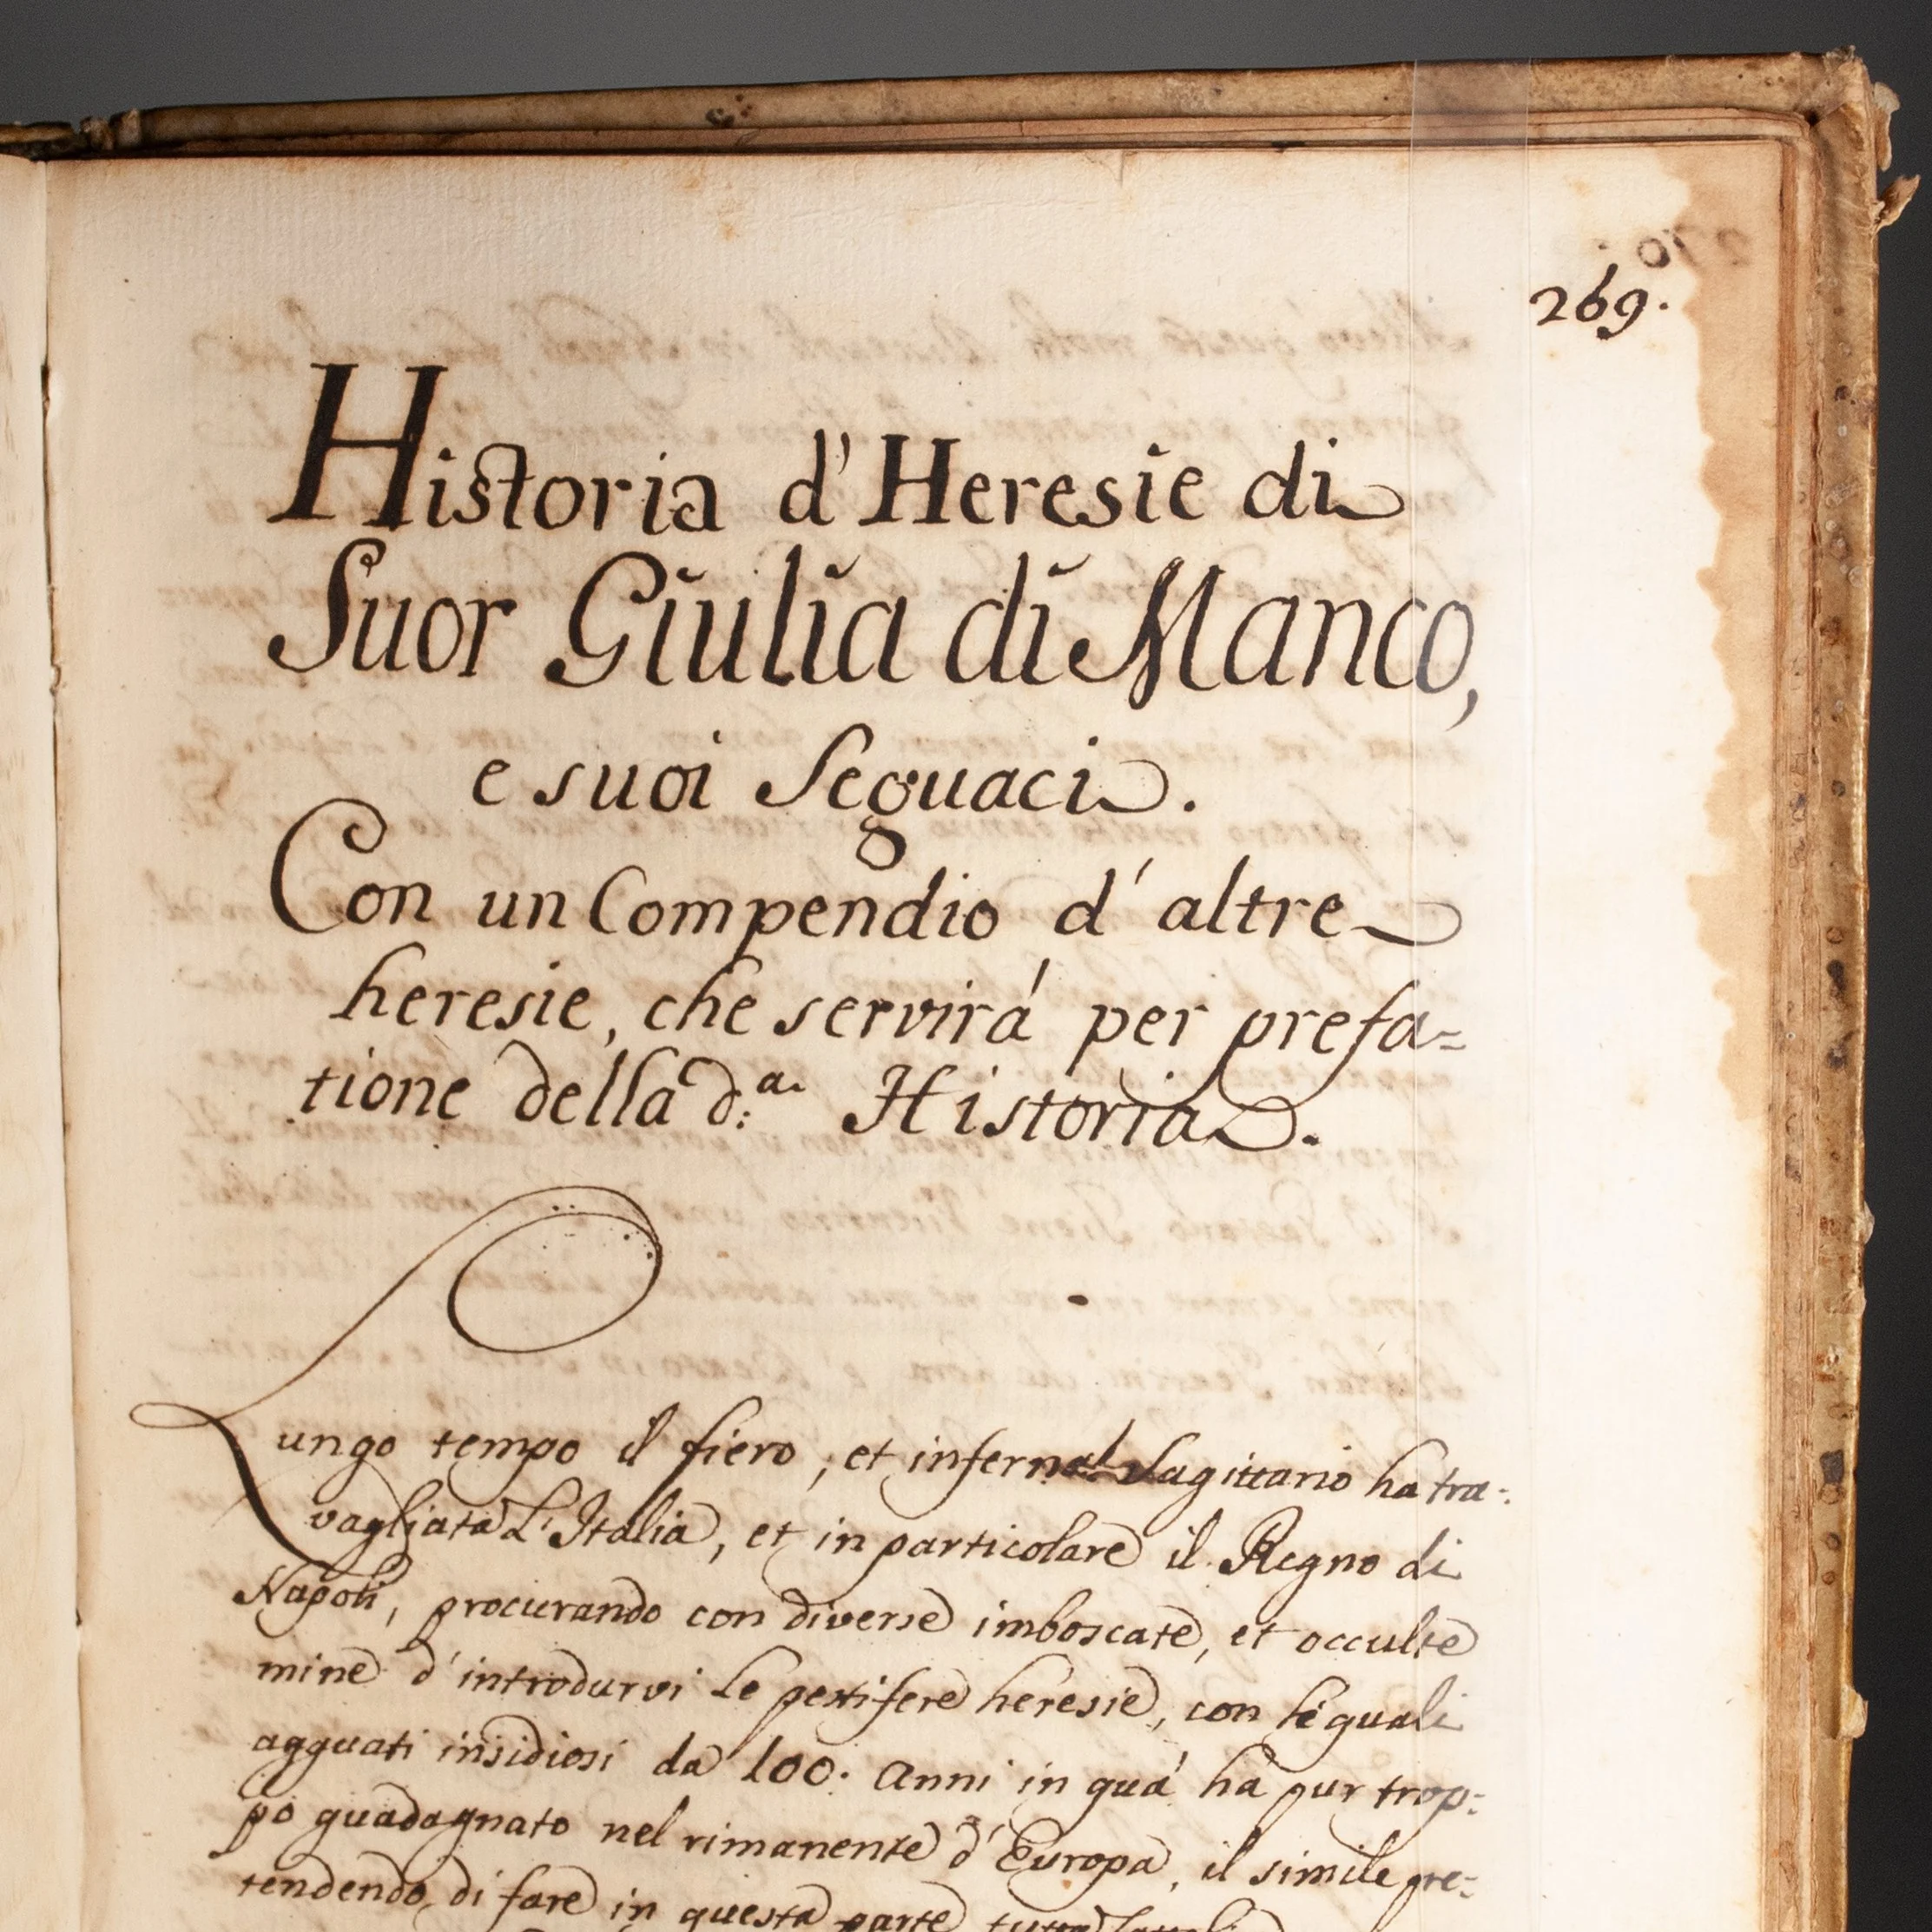 269.
Historia d'Heresie di
Suor Giulia di Manco,
e suoi Seguaci.
Con un Compendio d'altre
heresie, che servirá per prefa=
tione della d:ª. Historia.
Lungo tempo il fiero, et infernal Sagittario ha tra=
vagliata L'Italia, et in particolare il Regno di
Napoli, procurando con diverse imboscate, et occulte
mine d'introdurvi le pestifere heresie, con le quali
agguati insidiosi da 100. anni in quá ha pur trop=
po guadagnato nel rimanente d'Europa, il simile pre=
tendendo di fare in questa parte